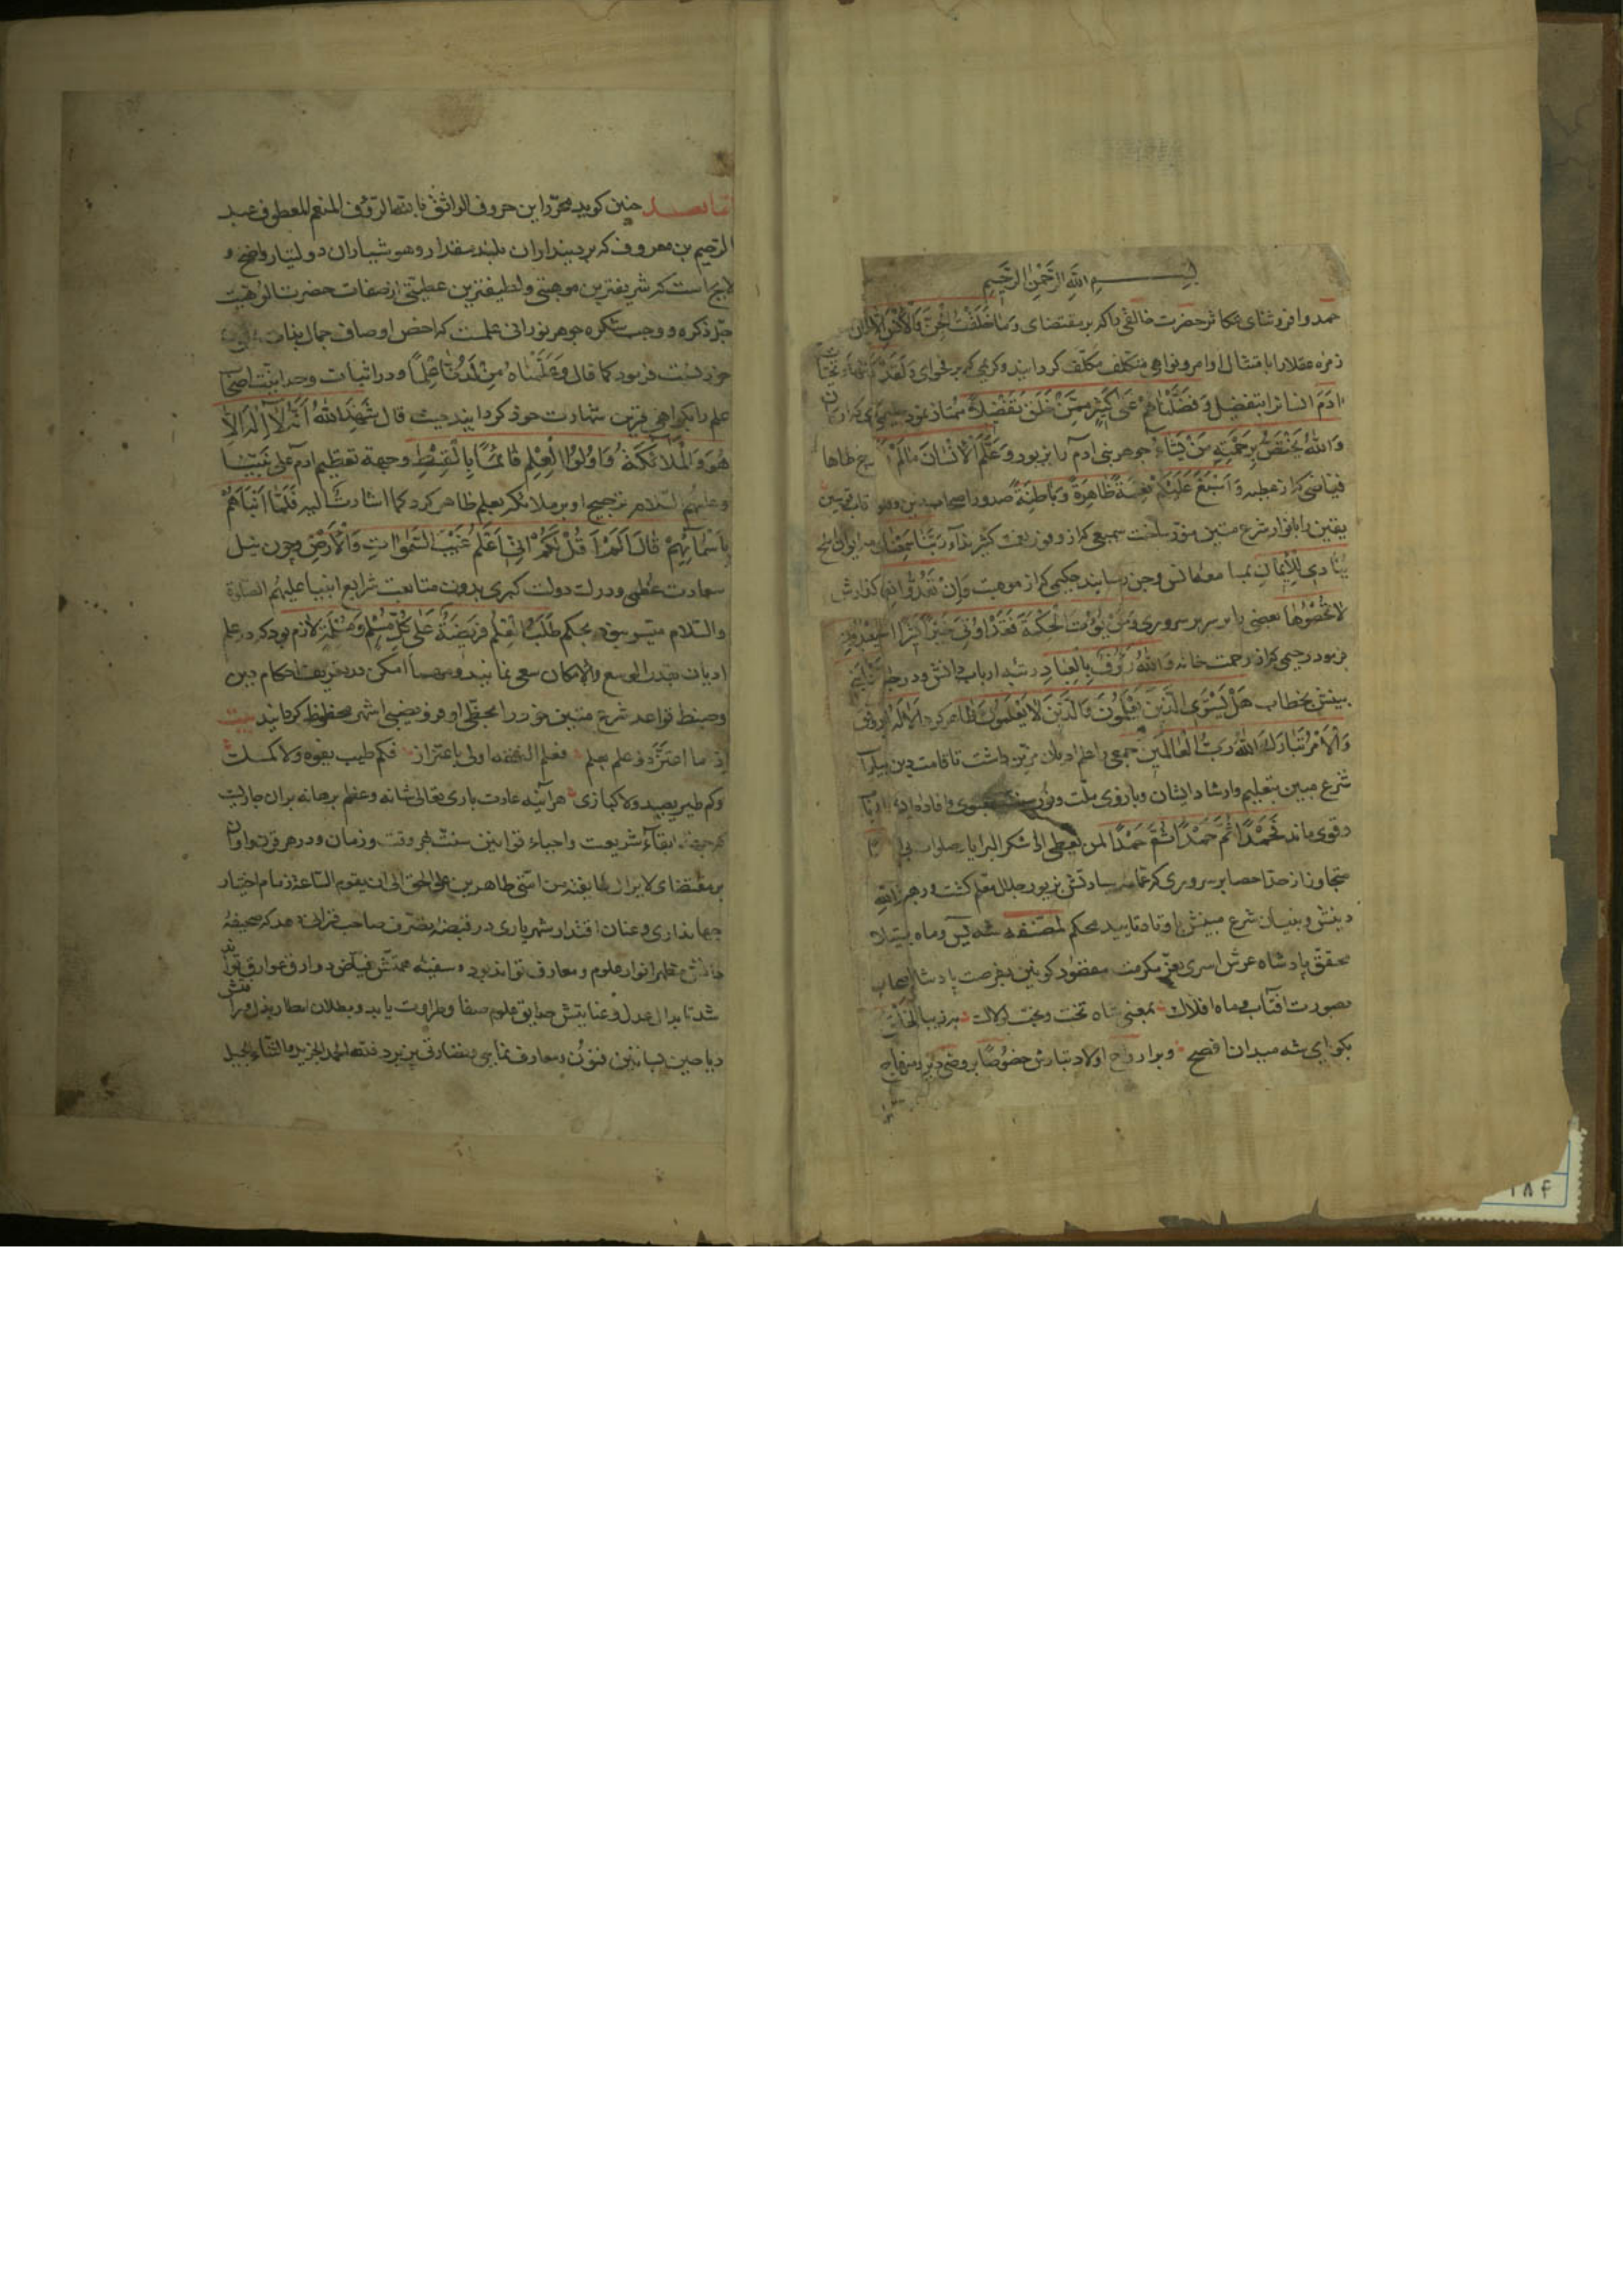 بسم الله الرحمن الرحيم
حمد وافر و ثنای متکاثر حضرت خالقی را که بر مقتضای وما خلقت الجن والانس الا
زمره عقلا را با متثال اوامر و نواهی متکلف مکلف کردانید و کریمی که بر فحوای ولقد کرمنا بنی
ادم انسانرا بتفضیل وفضلناهم علی کثیر ممن خلق تفضیلا ممتاز نمود
والله یختص برحمته من یشاء جوهر بنی ادم را بزیور وعلم الانسان مالم
فیاضی که از عطیه واسبغ علیکم نعمه ظاهرة وباطنة صدور اصحاب دین
یقین را بانوار شرع متین منور ساخت سمیعی که از وفور نعمت کثیر نداء ربنا سمعنا
ینادی للایمان بمسامع انس وجن رسانید حکیمی که از موهبت وان تعدوا نعمة
لا تحصوها بعضی را بر سریر سروری ومن یؤت الحکمة فقد اوتی خیرا کثیرا
فرمود رحیمی که از رحمت خانه والله رؤف بالعباد رتبه ارباب دانش و درجه
بینش بخطاب هل یستوی الذین یعلمون والذین لا یعلمون ظاهر کرد الا له الخلق
والامر تبارک الله رب العالمین جمعی را بعلم ادیان مزین داشت تا قامت دین
شرع مبین بتعلیم وارشاد ایشان وبازوی ملت
وقوی ماند فحمدا ثم حمدا ثم حمدا لمن یعطی اذا شکر البرایا
متجاوز از حد احصا بر سروری که عمامه سیادتش بزیور جلال معلم کشت
دینش و بنیان شرع مبینش باوتاد تایید محکم لمصنفه شه یس وماه
محقق پادشاه عرش اسری بعز مکرمت مقصود کونین بفرصت پادشاه
بصورت آفتاب وماه افلاک بمعنی شاه تخت وبخت لولاک
بکو ای شه میدان افصح وبر ارواح اولاد تبارش خصوصا بر وصی
اما بعد چنین کوید محرر این حروف الواثق بالله الرؤف المنعم العطوف عبد
الرحیم بن معروف که بر دینداران بلند مقدار و هوشیاران دولتیار واضح و
لایح است که شریفترین موهبتی و لطیفترین عطیتی از صفات حضرت الوهیت
جل ذکره و وجب شکره جوهر نورانی علمست که اخص اوصاف جمال
خود نسبت فرمود کما قال وعلمناه من لدنا علما و در اثبات وحدانیت اصحاب
علم را بکواهی قرین شهادت خود کردانید حیث قال شهد الله انه لا اله الا
هو والملائکة واولوا العلم قائما بالقسط وجهة تعظیم ادم علی نبینا
وعلیه السلام ترجیح او بر ملائکه بعلم ظاهر کرد کما اشارت الیه فلما انبأهم
باسمائهم قال الم اقل لکم انی اعلم غیب السموات والارض وچون نیل
سعادت عظمی و درک دولت کبری بدون متابعت شرایع انبیا علیهم الصلوة
والسلام متیسر نبود بحکم طلب العلم فریضة علی کل مسلم ومسلمة لازم بود که در علم
ادیان بقدر الوسع والامکان سعی نمایند و مهما امکن در تعریف احکام دین
وضبط قواعد شرع متین خود را بحظی اوفر و نصیبی اشهر محظوظ کردانند بیت
اذا ما اعتز ذو علم بعلم فعلم الفقه اولی باعتزاز فکم طیب یفوح ولا کمسک
وکم طیر یصید ولا کبازی هر آینه عادت باری تعالی شانه وعظم برهانه بران جاریست
که جهة ابقاء شریعت واحیاء قوانین سنت هر وقت وزمان ودر هر قرن واوان
بر مقتضای لایزال طایفة من امتی ظاهرین علی الحق الی ان یقوم الساعة زمام اختیار
جهانداری وعنان اقتدار شهریاری در قبضه تصرف صاحب قرانی نهد که صحیفه
مظهر انوار علوم و معارف تواند بود و سفینه همتش فیاض عوارف تواند
شد تا بدان عدل وعنایتش حدایق علوم صفا وطراوت یابد
ریاحین بساتین فنون ومعارف نمایی ونضارتی پزیرد فلله الحمد الجزیل والثناء الجمیل